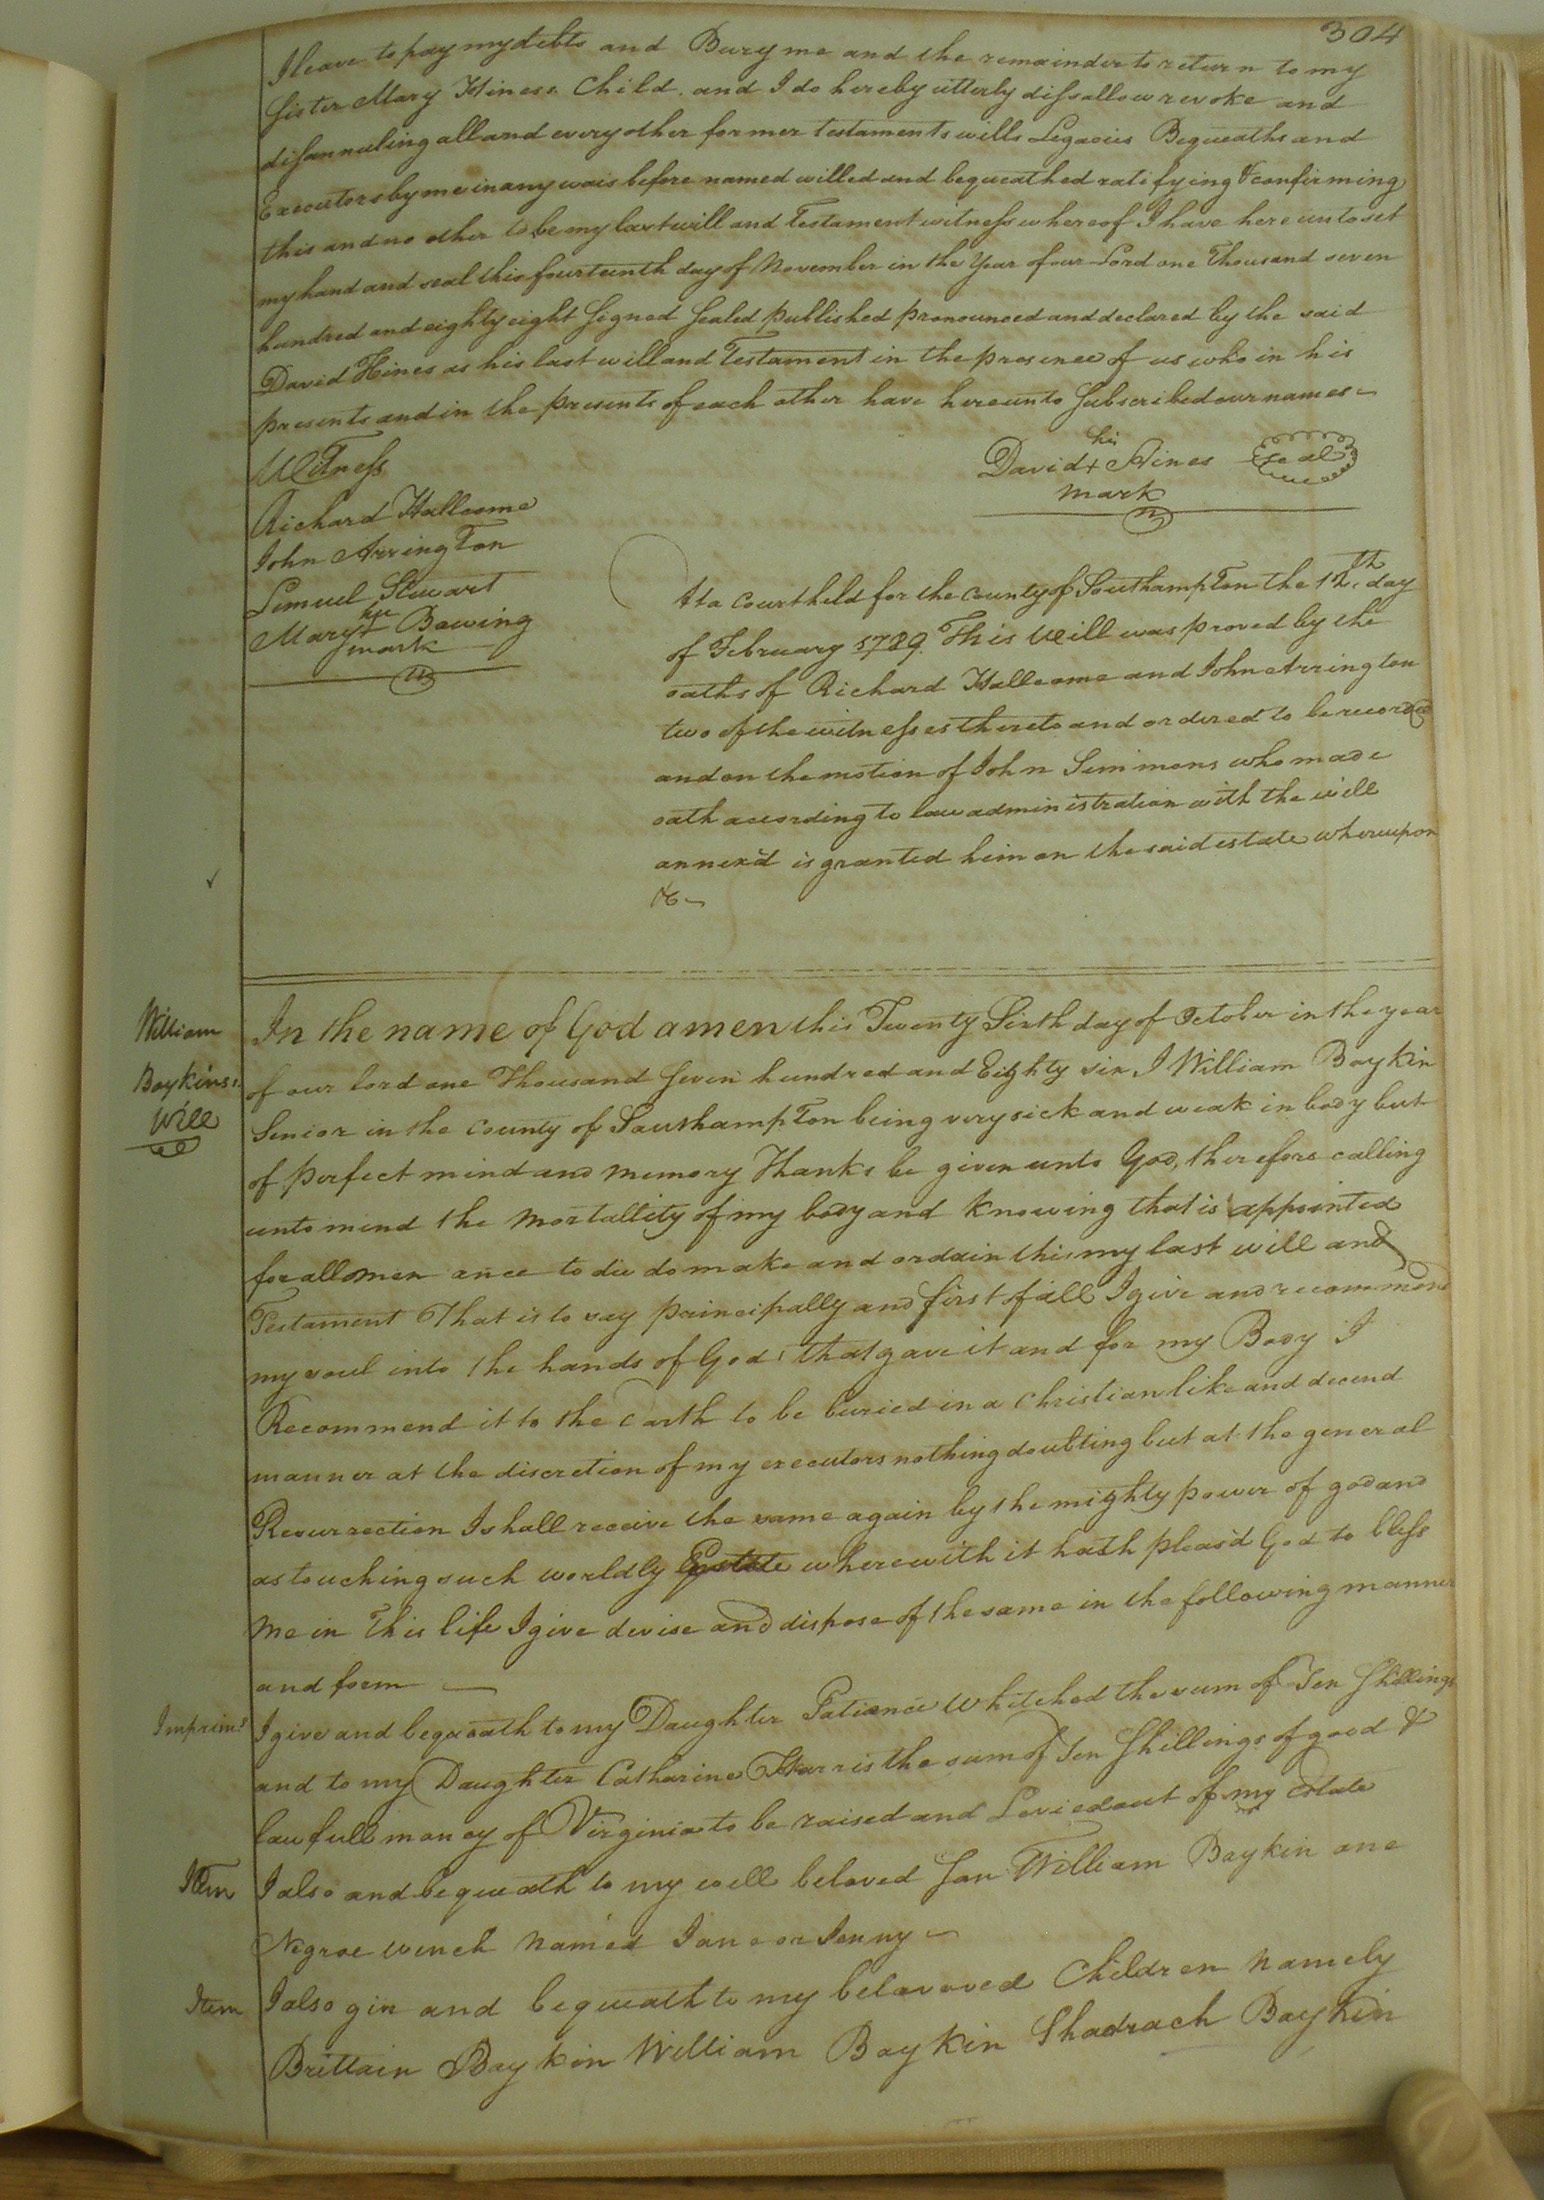 304
I leave to pay my debts and Bury me and the remainder to return to my
Sister Mary Hiness Child. and I do hereby utterly dissallow revoke and
disannuling all and every other former testaments wills Legacies Bequeaths and
Executors by me in any wais before named willed and bequeathed ratifying & confirming
this and no other to be my last will and Testament witness whereof I have hereunto set
my hand and seal this fourteenth day of November in the Year of our Lord one Thousand seven
hundred and eighty eight Signed Sealed published pronounced and declared by the said
David Hines as his last will and Testament in the presence of us who in his
presents and in the presents of each other have hereunto Subscribed our names
Witness
his
David + Hines Seal
mark
Richard Hallcome
John Arrington
Lemuel Stewart
her
Mary + Bowing
mark
At a Court held for the County of Southampton the 12th. day
of February 1789. This Will was proved by the
oaths of Richard Hallcome and John Arrington
two of the witnesses thereto and ordered to be recorded
and on the motion of John Simmons who made
oath according to law administration with the will
annex'd is granted him on the said estate whereupon
&c
William
Boykins:
Will
In the name of God amen this Twenty Sixth day of October in the year
of our lord one Thousand Seven hundred and Eighty six, I William Boykin
Senior in the County of Southampton being very sick and weak in body but
of perfect mind and memory Thanks be given unto God, therefore calling
unto mind the mortallity of my body and knowing that is appointed
for all men once to die do make and ordain this my last will and
Testament That is to say principally and first of all I give and recommend
my soul into the hands of God that gave it and for my Body I
Recommend it to the Earth to be buried in a Christian like and decend
manner at the discretion of my executors nothing doubting but at the general
Resurrection I shall receive the same again by the mighty power of god and
as touching such worldly Estate wherewith it hath pleas'd God to bless
me in this life I give devise and dispose of the same in the following manner
and form
Imprims I give and bequeath to my Daughter Patience Whitehed the sum of Ten Shillings
and to my Daughter Catharine Harris the sum of Ten Shillings of good &
lawfull money of Virginia to be raised and Levied out of my Estate
Item I also and bequeath to my well beloved Son William Boykin one
Negroe wench named Jane or Jenny
Item I also give and bequeath to my belovoved Children namely
Brittain Boykin William Boykin Shadrach Boykin